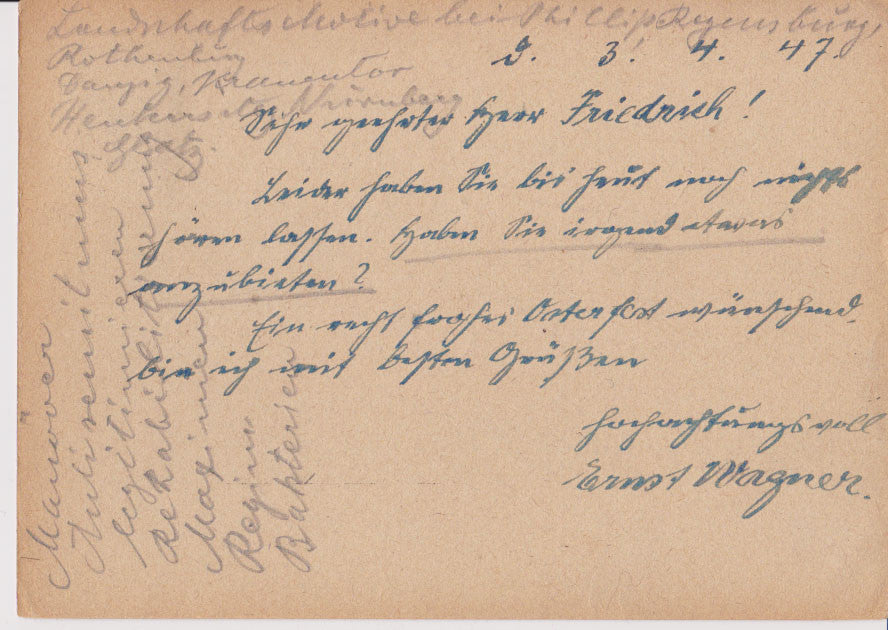 Landschafts Motive bei Phillip Regensburg,
Rothenburg
Danzig, Kranentor
Henkersteg, Nürnberg
Glatz.
d. 3. 4. 47.
Sehr geehrter Herr Friedrich!
Leider haben Sie bis heut noch nichts
hören lassen. Haben Sie irgend etwas
anzubieten?
Ein recht frohes Osterfest wünschend,
bin ich mit besten Grüßen
hochachtungsvoll
Ernst Wagner.
Manöver
Antisemitismus
legitimieren
Rehabilitierung
Maximen
Regime
Bakterien